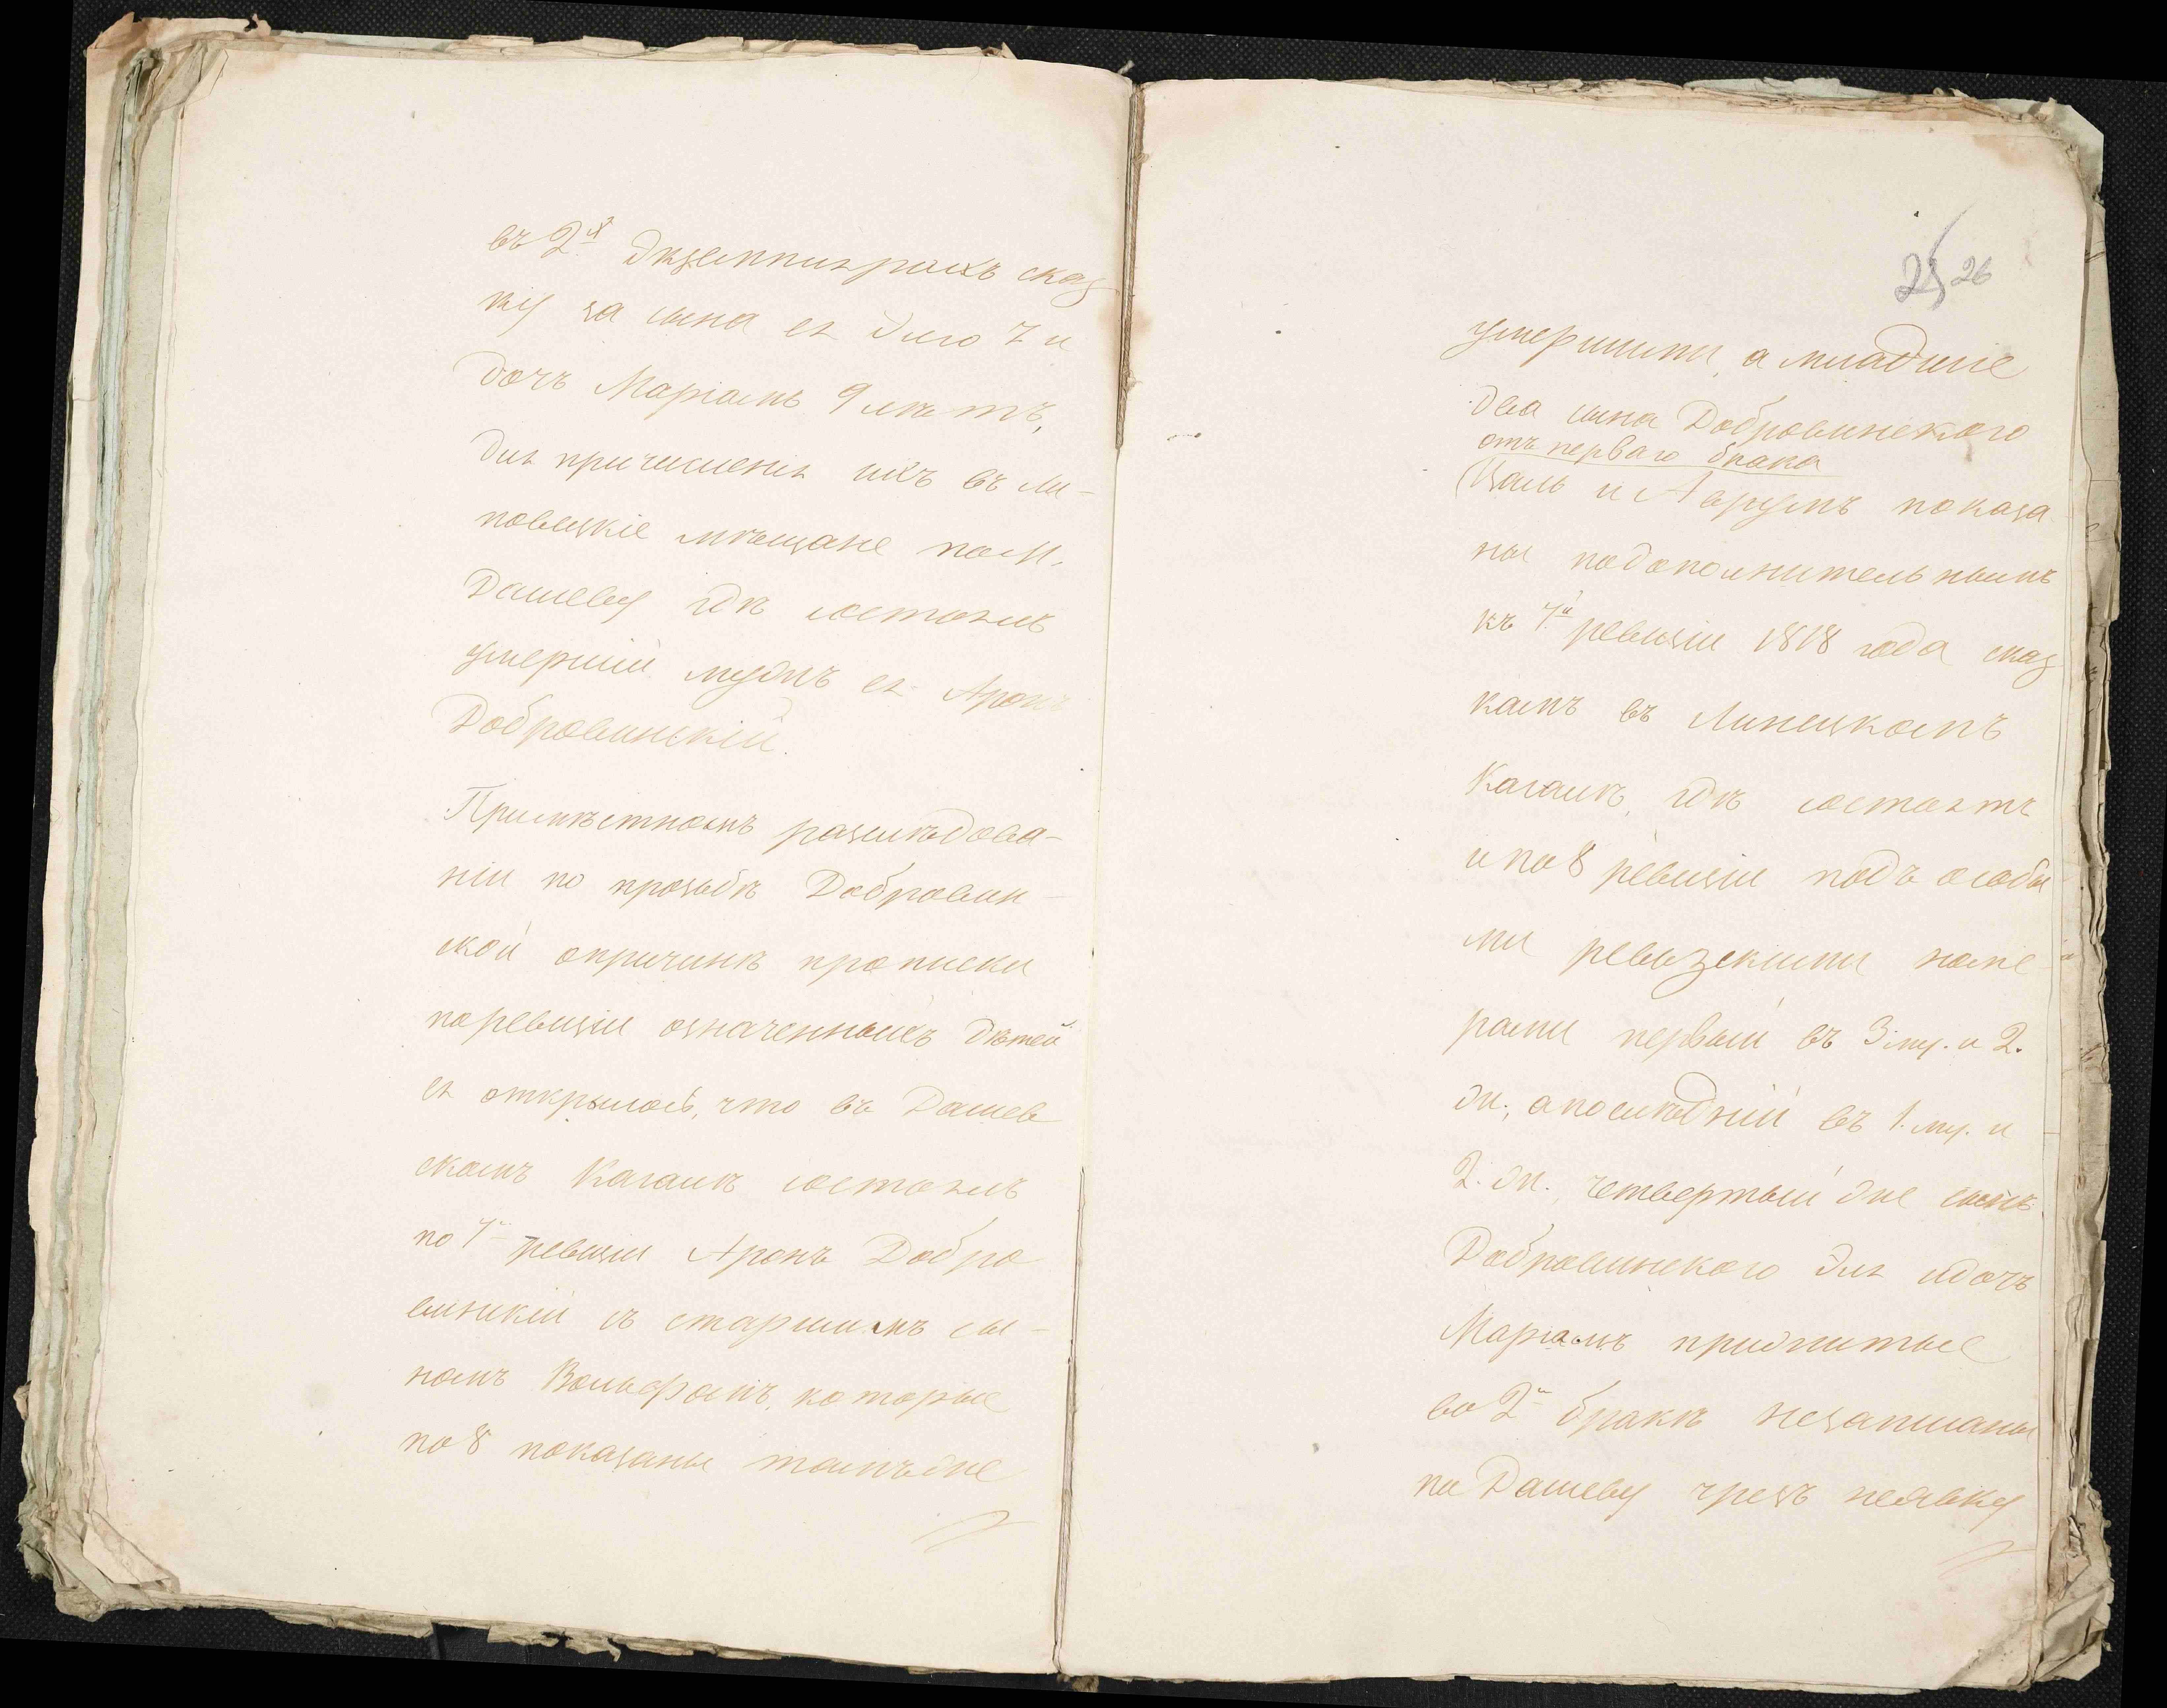 въ 2х Экземплярахъ сказ
ку за сына ея Элю 7 и
дочь Маріамъ 9 лѣтъ,
для причисленія ихъ въ Ли-
повецкіе мѣщане по М.
Дашеву гдѣ состоялъ
умершій мужъ ея Аронъ
Добровинскій.
При мѣстномъ разслѣдова-
ніи по прозьбѣ Добровин-
ской о причинѣ прописки
по ревизіи означенныхъ дѣтей
ея открылось, что въ Дашев
скомъ Кагалѣ состоялъ
по 7й ревизіи Аронъ Добро
винскій съ старшимъ сы-
номъ Вольфомъ, которые
по 8 показаны тамъ же
25 26
умершими, а младшіе
два сына Добровинского
отъ перваго брака
Цаль и Аврумъ показа
ны по дополнительнымъ
къ 7й ревизіи 1818 года сказ
камъ въ Линецкомъ
Кагалѣ, гдѣ состоятъ
и по 8 ревизіи подъ особы
ми ревизскими номе-
рами первый въ 3 му. и 2.
ж., а послѣдній въ 1. му. и
2. ж., четвертый же сынъ
Добровинского Эля и дочь
Маріамъ прижитые
во 2й бракѣ незаписаны
по Дашеву чрезъ неявку